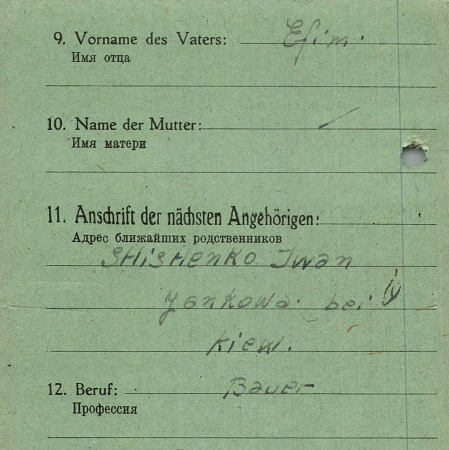 9. Vorname des Vaters: Efim.
Имя отца
10. Name der Mutter: /
Имя матери
11. Anschrift der nächsten Angehörigen:
Адрес ближайших родственников
Shishenko Iwan
Jankowa. bei
Kiew.
12. Beruf: Bauer
Профессия